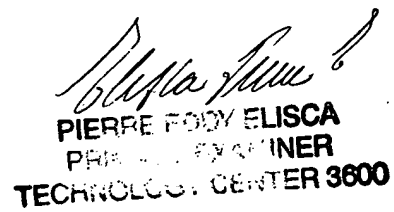 PIERRE EDDY ELISCA
PRIMARY EXAMINER
TECHNOLOGY CENTER 3600